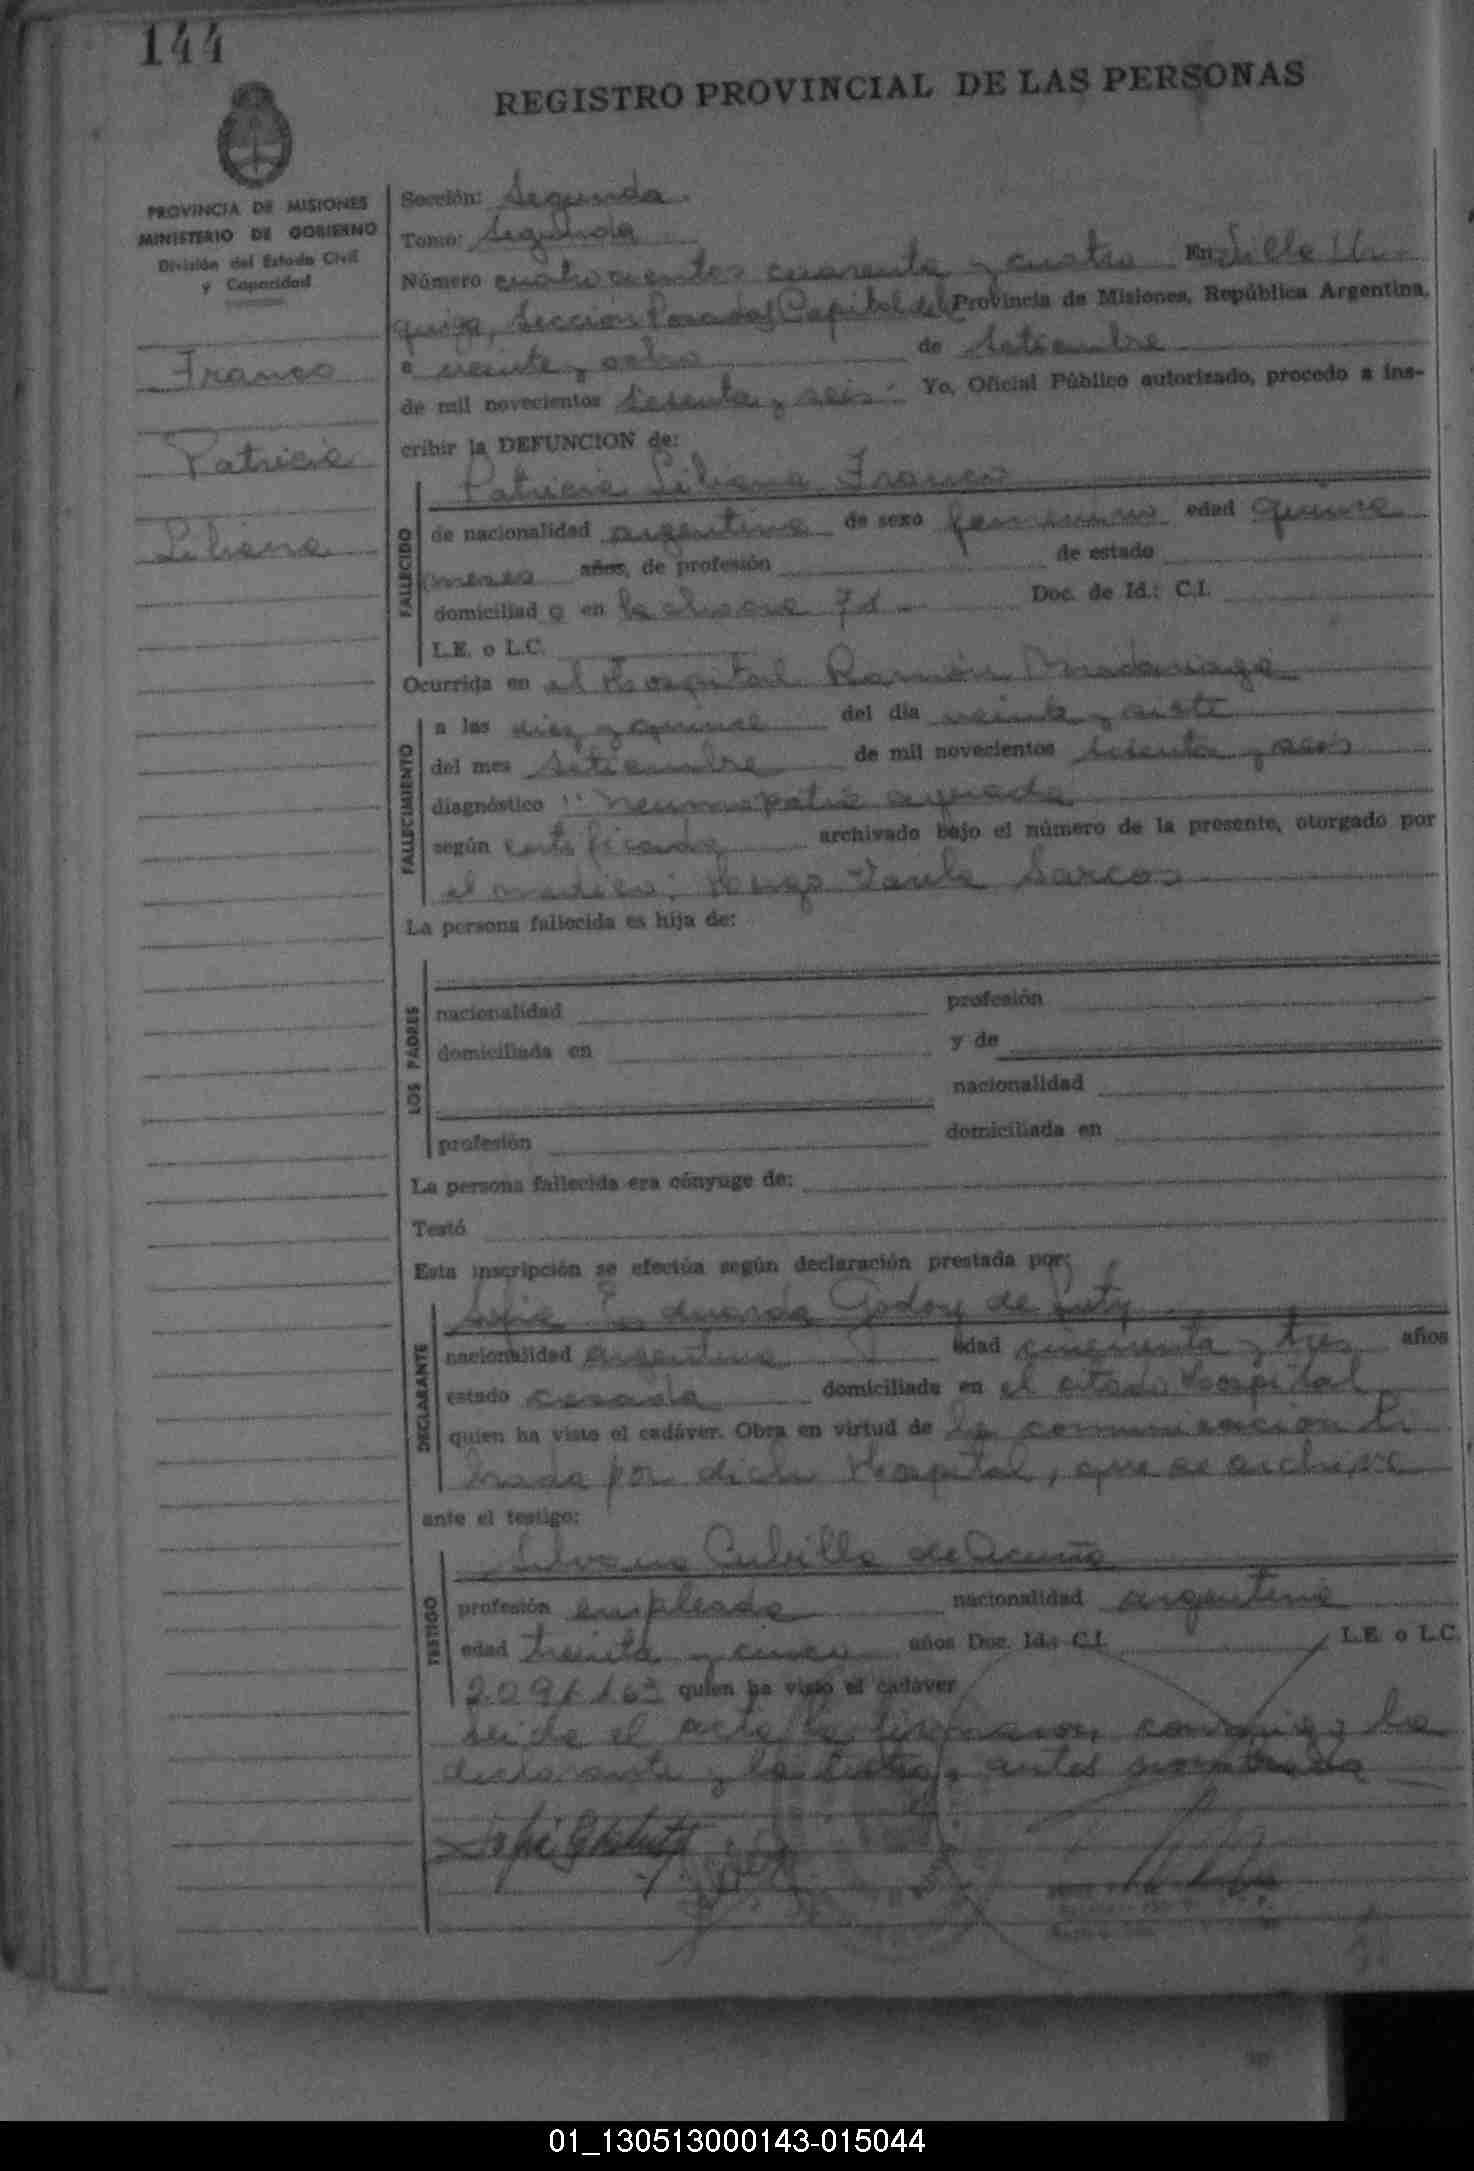 144
REGISTRO PROVINCIAL DE LAS PERSONAS
PROVINCIA DE MISIONES
MINISTERIO DE GOBIERNO
División del Estado Civil
y Capacidad
Franco
Patricia
Liliana
Sección: Segunda
Tomo: Segundo
Número cuatrocientos cuarenta y cuatro En Villa Ur-
quiza, Sección Posadas Capital de la Provincia de Misiones, República Argentina,
a veinte y ocho de Setiembre
de mil novecientos sesenta y seis Yo, Oficial Público autorizado, procedo a ins-
cribir la DEFUNCION de:
Patricia Liliana Franco
FALLECIDO
de nacionalidad argentina de sexo femenino edad quince
meses años, de profesión de estado
domiciliad a en la chacra Doc. de Id.: C.I.
L.E. o L.C.
Ocurrida en el Hospital Ramón Madariaga
FALLECIMIENTO
a las diez y quince del día veinte y siete
del mes Setiembre de mil novecientos sesenta y seis
diagnóstico "neumopatia aguda
según certificado archivado bajo el número de la presente, otorgado por
el medico: Hugo Sarcos
La persona fallecida es hija de:
LOS PADRES
nacionalidad profesión
domiciliada en y de
nacionalidad
profesión domiciliada en
La persona fallecida era cónyuge de:
Testó
Esta inscripción se efectúa según declaración prestada por:
DECLARANTE
Sofia Eduarda Godoy de
nacionalidad argentina edad cincuenta y tres años
estado casada domiciliada en el citado Hospital
quien ha visto el cadáver. Obra en virtud de la comunicacion li
brada por dicho Hospital, que se archiva
ante el testigo:
TESTIGO
Silvana Cubilla de Acuña
profesión empleada nacionalidad argentina
edad treinta y cinco años Doc. Id.: C.I. L.E. o L.C.
quien ha visto el cadáver
Leida el acta la firmaron conmigo, la
declarante y la testigo antes nombrada
01_130513000143-015044